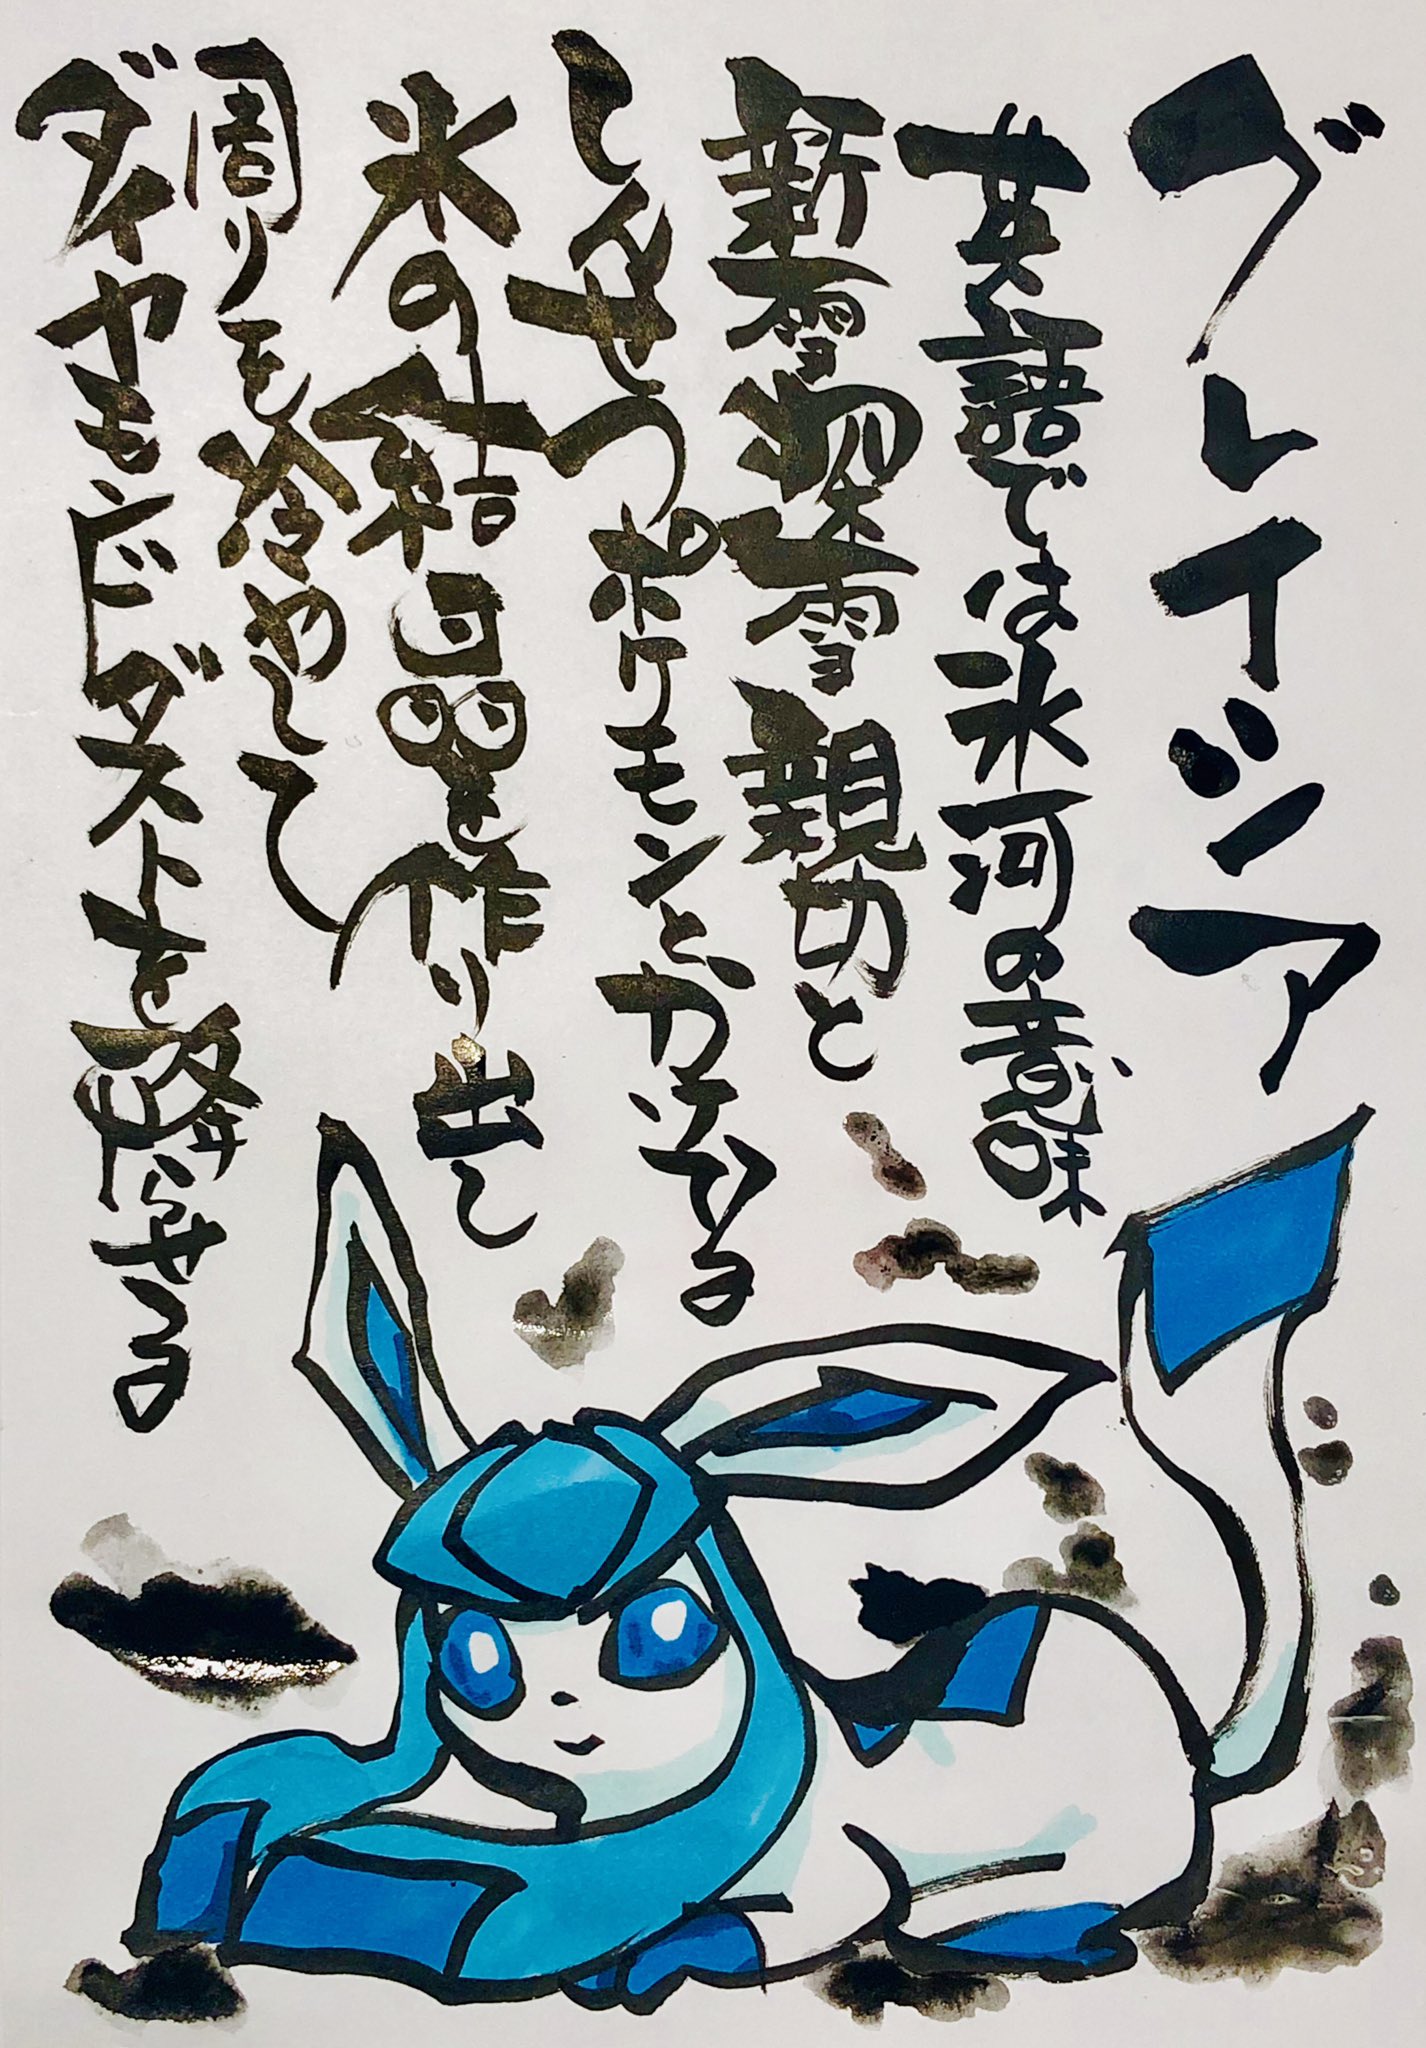 グレイシア
英語では氷河の意味
新雪深雪親切と
しんせつポケモンとかけてる
氷の結晶を作り出し
周りを冷やして
ダイヤモンドダストを降らせる